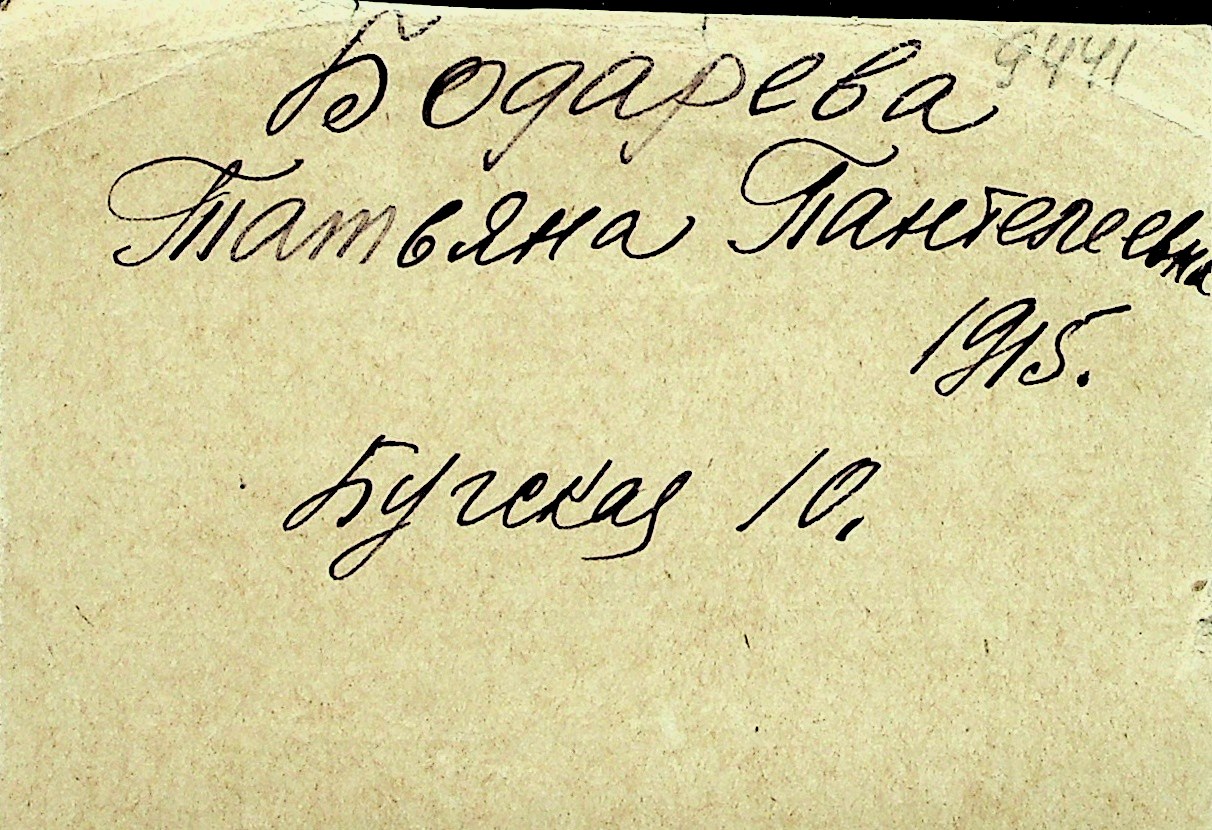 9441
Бодарева
Татьяна Пантелеевна
1915.
Бугская 10.